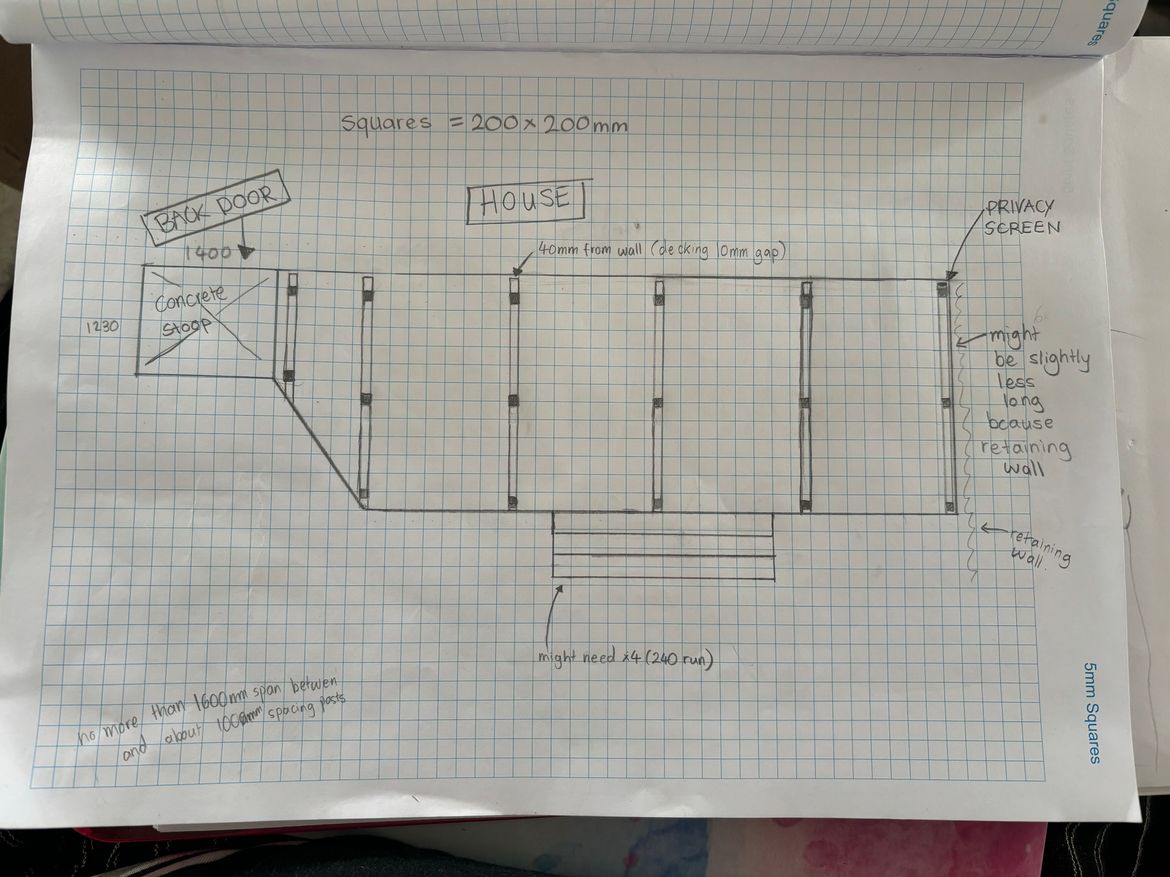 squares
squares = 200 x 200mm
BACK DOOR
HOUSE
PRIVACY
SCREEN
1400
40mm from wall (decking 10mm gap)
Concrete
stoop
1230
might
be slightly
less
long
bcause
retaining
wall
retaining
wall.
might need x4 (240 run)
no more than 1600mm span betwen
and about 1000mm spacing posts
5mm Squares